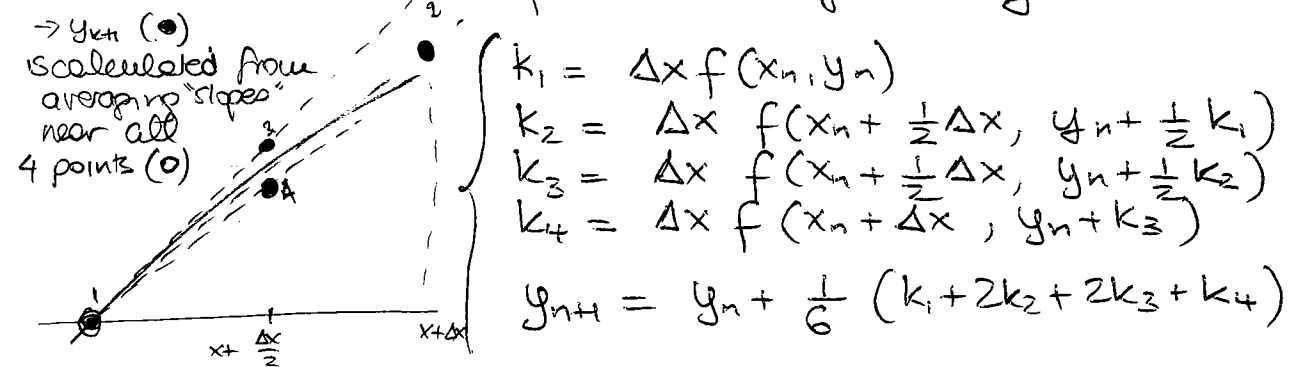 → yₖ₊₁ (●)
is calculated from
averaging "slopes"
near all
4 points (O)
2
3
4
1
x + Δx/2
x+Δx
k₁ = Δx f(xₙ, yₙ)
k₂ = Δx f(xₙ + ½Δx, yₙ + ½ k₁)
k₃ = Δx f(xₙ + ½Δx, yₙ + ½ k₂)
k₄ = Δx f(xₙ + Δx, yₙ + k₃)
yₙ₊₁ = yₙ + 1/6 (k₁ + 2k₂ + 2k₃ + k₄)